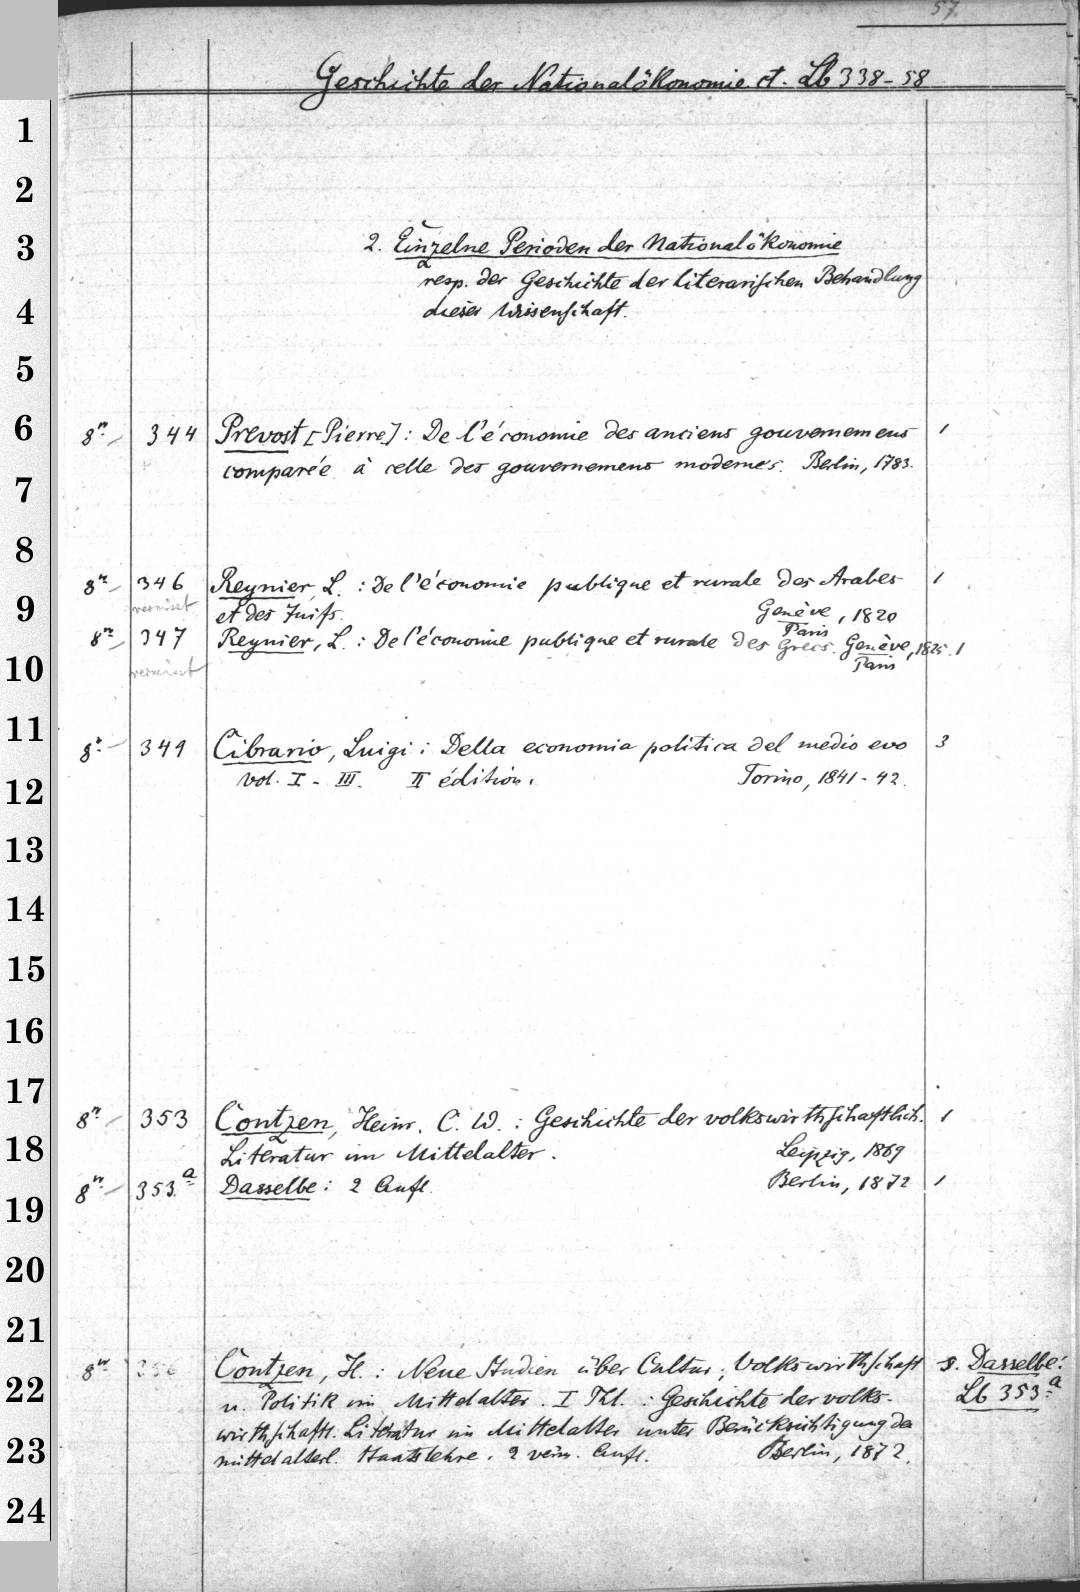 57.
Geschichte der Nationalökonomie cf. Lb 338-58
1
2
3
2. Einzelne Perioden der Nationalökonomie
resp. der Geschichte der literarischen Behandlung
4
dieser Wissenschaft.
5
6
8º 344 Prevost [Pierre]: De l'économie des anciens gouvernemens 1
comparée à celle des gouvernemens modernes. Berlin, 1783.
7
8
8º 346 Reynier, L. : De l'économie publique et rurale des Arabes 1
9
vermisst et des Juifs. Genève, 1820
Paris
8º 347 Reynier, L. : De l'économie publique et rurale des Grecs. Genève, 1825. 1
10
vermisst Paris
11
8º 349 Cibrario, Luigi : Della economia politica del medio evo 3
12
vol. I - III. II édition. Torino, 1841-42.
13
14
15
16
17
8º 353 Contzen, Heinr. C. W. : Geschichte der volkswirthschaftlich. 1
18
Literatur im Mittelalter. Leipzig, 1869
8º 353.a Dasselbe : 2 Aufl. Berlin, 1872 1
19
20
21
8º 356 Contzen, H. : Neue Studien über Cultur, Volkswirthschaft s. Dasselbe:
22
u. Politik im Mittelalter. I Thl. : Geschichte der volks- Lb 353a
wirthschaftl. Literatur im Mittelalter unter Berücksichtigung der
23
mittelalterl. Staatslehre. 2 verm. Aufl. Berlin, 1872.
24